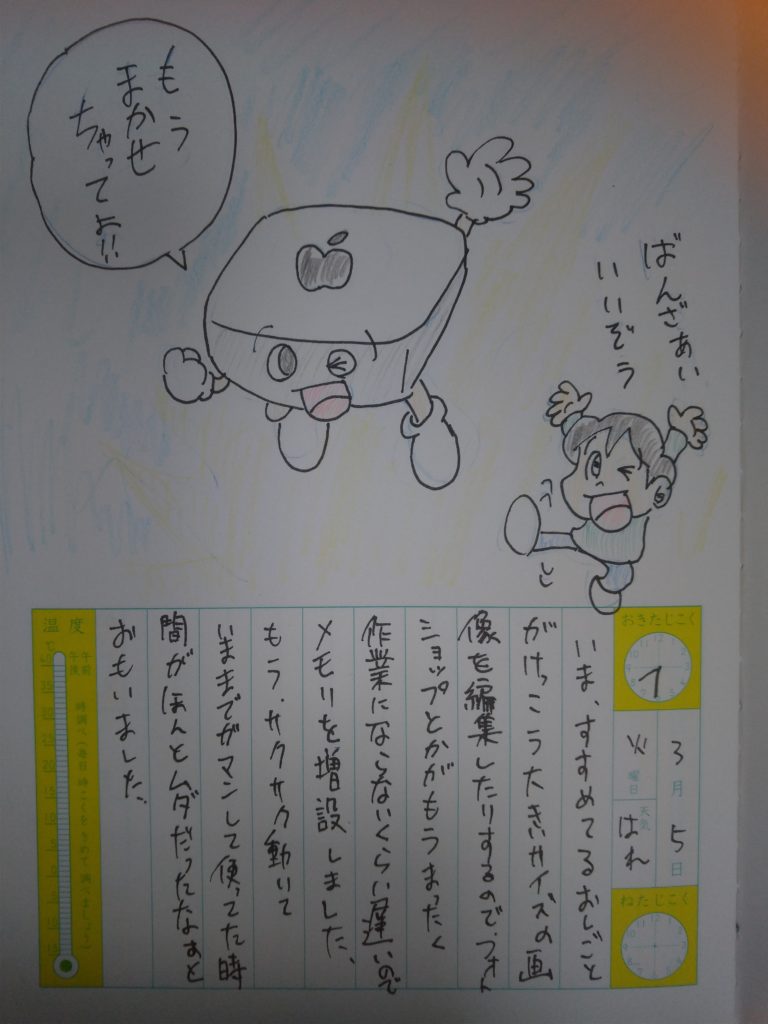 もう
まかせ
ちゃってよ!!
ばんざあい
いいぞう
おきたじこく
7
3月5日
火曜日
天気
はれ
ねたじこく
いま、すすめてるおしごと
がけっこう大きいサイズの画
像を編集したりするので、フォト
ショップとかがもうまったく
作業にならないくらい遅いので
メモリを増設しました、
もう、サクサク動いて
いままでガマンして使ってた時
間がほんとムダだったなぁと
おもいました、
温度
℃
午前
午後
時調べ(毎日時こくをきめて調べましょう)
40
35
30
25
20
15
10
5
0
5
10
15